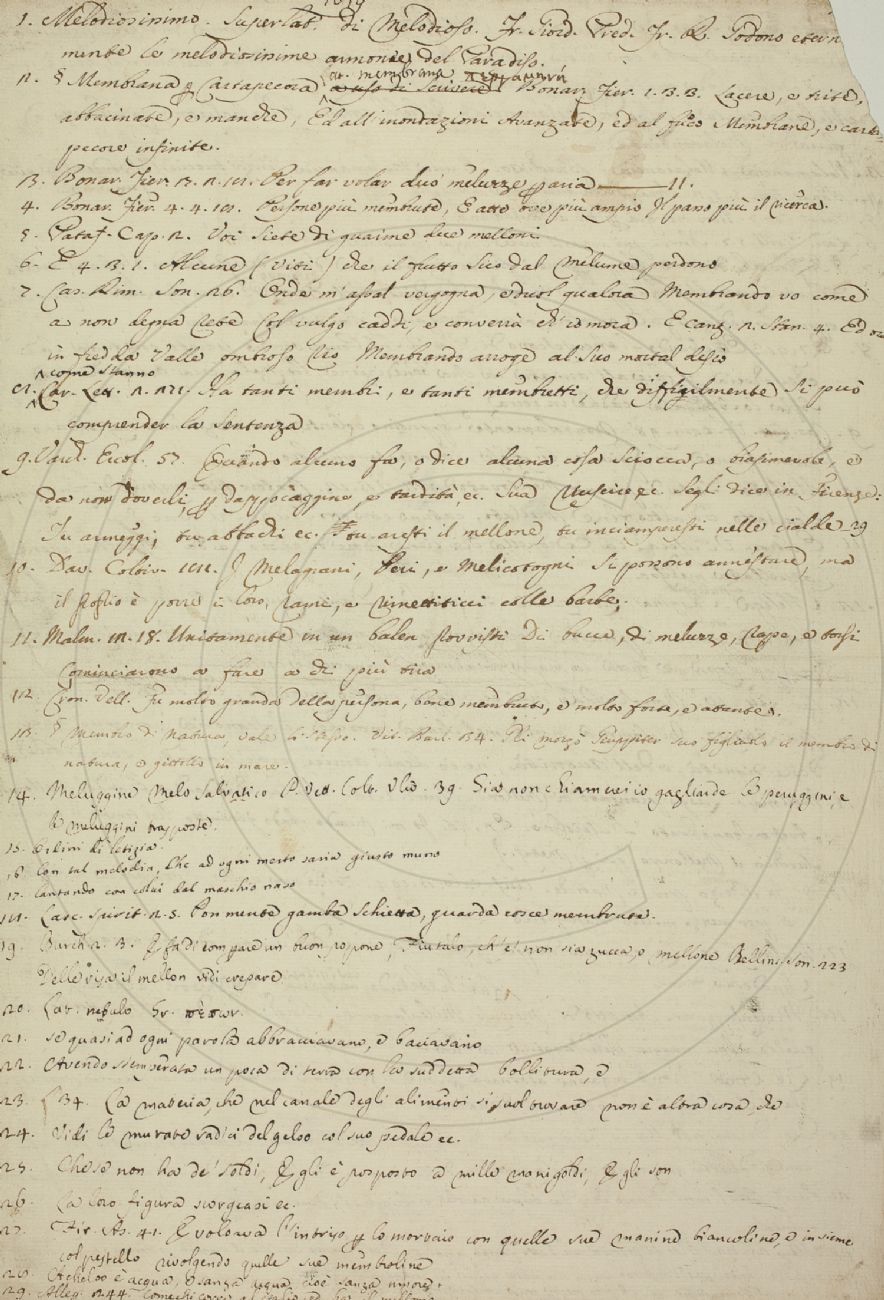 1. Melodiosissimo. Superlat. di Melodioso. Fr. Giord. Pred. Fr. R. Godono etern
mente le melodiosissime armonie del Paradiso.
lat. membrana
2. § Membrana Cartapecora Bonar. Fier. 1. 3. 3. Lacere, e trite,
abbacinate, e manche, Ed all'inondazioni Avanzate, ed al fuoco Membrane, e carta-
pecore infinite.
3. Bonar. Fier. 3. 2. Per far volar due meluzze aria 11.
4. Bonar. Fier. 4. 4. Persone più membrute, E atte ove più ampio Il passo più il ricerca.
5. Pataf. Cap. 2. Voi siete di guaime due melloni
6. E 4. 3. 1. Alcune (viti) che il frutto suo dal Melume perdono
7. Cas. Rim. Son. 26. Onde m'assal vergogna, e duol qualora Membrando vo come
a non degna rete Col vulgo caddi, e converrà ch'io mora. E canz. 2. Stan. 4. Ed or
in fredda Valle ombroso rio Membrando arroge al suo mortal desio
come stanno
8. Car. Lett. 2. Ha tanti membri, e tanti membretti, che difficilmente si può
comprender la sentenza
9. Varch. Ercol. 57. Quando alcuno fa, o dice alcuna cosa sciocca, o biasimevole, e
da non dovergli, dappocaggine, e tardità, ec. sua riuscire, ec. segli dice in Firenze:
Tu armeggi, tu abbachi ec. Tu aresti il mellone, tu inciamperesti nelle cialde 29
10. Dav. Coltiv. I Melagrani, Peri, e Melicotogni si possono annestare, ma
il meglio è porre i loro rami, e rimettiticci colle barbe.
11. Malm. 12. 18. Unitamente in un balen provvisti Di bucce, di meluzze, rape, e torsi
Cominciarono a fare a chi più tira
12. Cron. Vell. Fu molto grande della persona, bene membruto, e molto forte, e atante.
13. § Membro di natura, vale lo stesso. Vit. Barl. 34. Gli mozzò Giuppiter suo figliuolo il membro di
natura, e gittollo in mare.
14. Meluggine Melo salvatico P. Vett. Colt. Uliv. 39. Già non chiamerei io gagliarde le peruggini, e
le meluggini trasposte.
15. di letizia.
16. Con tal melodia, Che ad ogni mesto saria giusto muno
17. Cantando con colui dal maschio naso
18. Lasc. Spirit. 2. 5. Pon mente gamba schietta, guarda cosce membrute.
19. Burch. 2. 3. comprare un buon popone, Fiutalo, ch'e' non sia zucca, o mellone Bellinc. Son. 223
Delle risa il mellon vidi crepare
20. Lat. nebulo Gr. πέπων.
21. se quasi ad ogni parola abbracciavano, e baciavano
22. Avendo stemperata un poca di terra con la suddetta bollitura, e
23. 34. La materia, che nel canale degli alimenti si suol trovare non è altra cosa, che
24. Vidi le murate radici del gelso col suo pedale ec.
25. Che se non ha de' soldi, Egli è posposto a mille manigoldi, Egli son
26. La loro figura scorgeasi ec.
27. Fir. As. 41. E voltava l'intriso lo mortaio con quelle sue manine biancoline, e insieme
col pestello rivolgendo quelle sue membroline
28. Acheloo è acqua, e sanza acqua, cioè sanza umore
29. Alleg. 244.